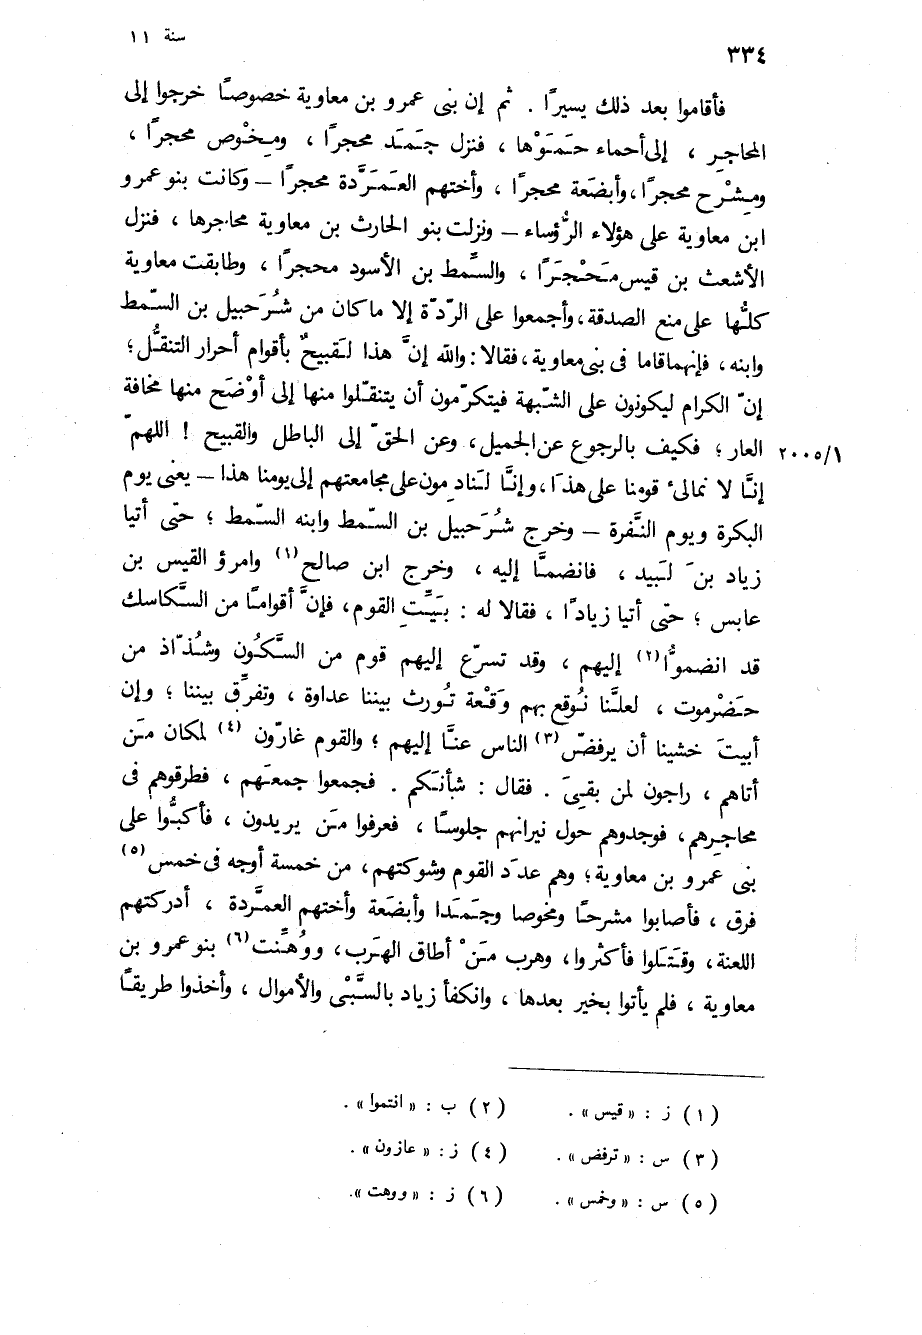 سنة ١١
٣٣٤
فأقاموا بعد ذلك يسيرًا . ثم إن بنى عمرو بن معاوية خصوصًا خرجوا إلى
المحاجِر ، إلى أحماء حَمَوْها ، فنزل جَمَد محجرًا ، ومِخْوص محجرًا ،
ومِشْرح محجرًا ، وأبضَعة محجرًا ، وأختهم العَمَرَّدة محجرًا – وكانت بنو عمرو
ابن معاوية على هؤلاء الرُّؤساء – ونزلت بنو الحارث بن معاوية محاجرها ، فنزل
الأشعث بن قيس مَحْجَرًا ، والسِّمط بن الأسود محجرًا ، وطابقت معاوية
كلُّها على منع الصدقة ، وأجمعوا على الرّدّة إلا ما كان من شُرَحبيل بن السّمط
وابنه ، فإنهما قاما فى بنى معاوية ، فقالا : والله إنَّ هذا لَقبيحٌ بأقوام أحرار التنقُّل ؛
إنّ الكرام ليكونون على الشّبهة فيتكرّمون أن يتنقّلوا منها إلى أوْضَح منها مخافة
العار ؛ فكيف بالرجوع عن الجميل ، وعن الحقّ إلى الباطل والقبيح ! اللهمّ ٢٠٠٥/١
إنَّا لا نمالئ قومنا على هذَا ، وإنَّا لَنادِمون على مجامعتهم إلى يومنا هذا – يعنى يوم
البكرة ويوم النَّفرة – وخرج شُرَحبيل بن السّمط وابنه السّمط ؛ حتّى أتيا
زياد بنَ لَبيد ، فانضمَّا إليه ، وخرج ابن صالح (١) وامرؤ القيس بن
عابس ؛ حتّى أتيا زيادًا ، فقالا له : بَيِّتِ القوم ، فإنَّ أقوامًا من السَّكاسك
قد انضموُّا (٢) إليهم ، وقد تسرّع إليهم قوم من السَّكُون وشُذّاذ من
حَضْرموت ، لعلَّنا نُوقع بهم وَقْعة تُورث بيننا عداوة ، وتفرِّق بيننا ؛ وإن
أبيتَ خشينا أن يرفضّ (٣) الناس عنَّا إليهم ؛ والقوم غارّون (٤) لمكان مَن
أتاهم ، راجون لمن بقىَ . فقال : شأنَكم . فجمعوا جمعَهم ، فطرقوهم فى
محاجِرهم ، فوجدوهم حول نيرانهم جلوسًا ، فعرفوا مَن يريدون ، فأكبُّوا على
بنى عمرو بن معاوية ؛ وهم عدَد القوم وشوكتهم ، من خمسة أوجه فى خمس (٥)
فرق ، فأصابوا مشرحًا ومخوصا وجَمَدا وأبضَعة وأختهم العمَّردة ، أدركتهم
اللعنة ، وقَتَلوا فأكثروا ، وهرب مَنْ أطاق الهَرب ، ووُهِّنت (٦) بنو عمرو بن
معاوية ، فلم يأتوا بخير بعدها ، وانكفأ زياد بالسَّبْى والأموال ، وأخذوا طريقًا
(١) ز : « قيس » . (٢) ب : « انتموا » .
(٣) س : « ترفض » . (٤) ز : « عازون » .
(٥) س : « وخمس » . (٦) ز : « ووهت » .